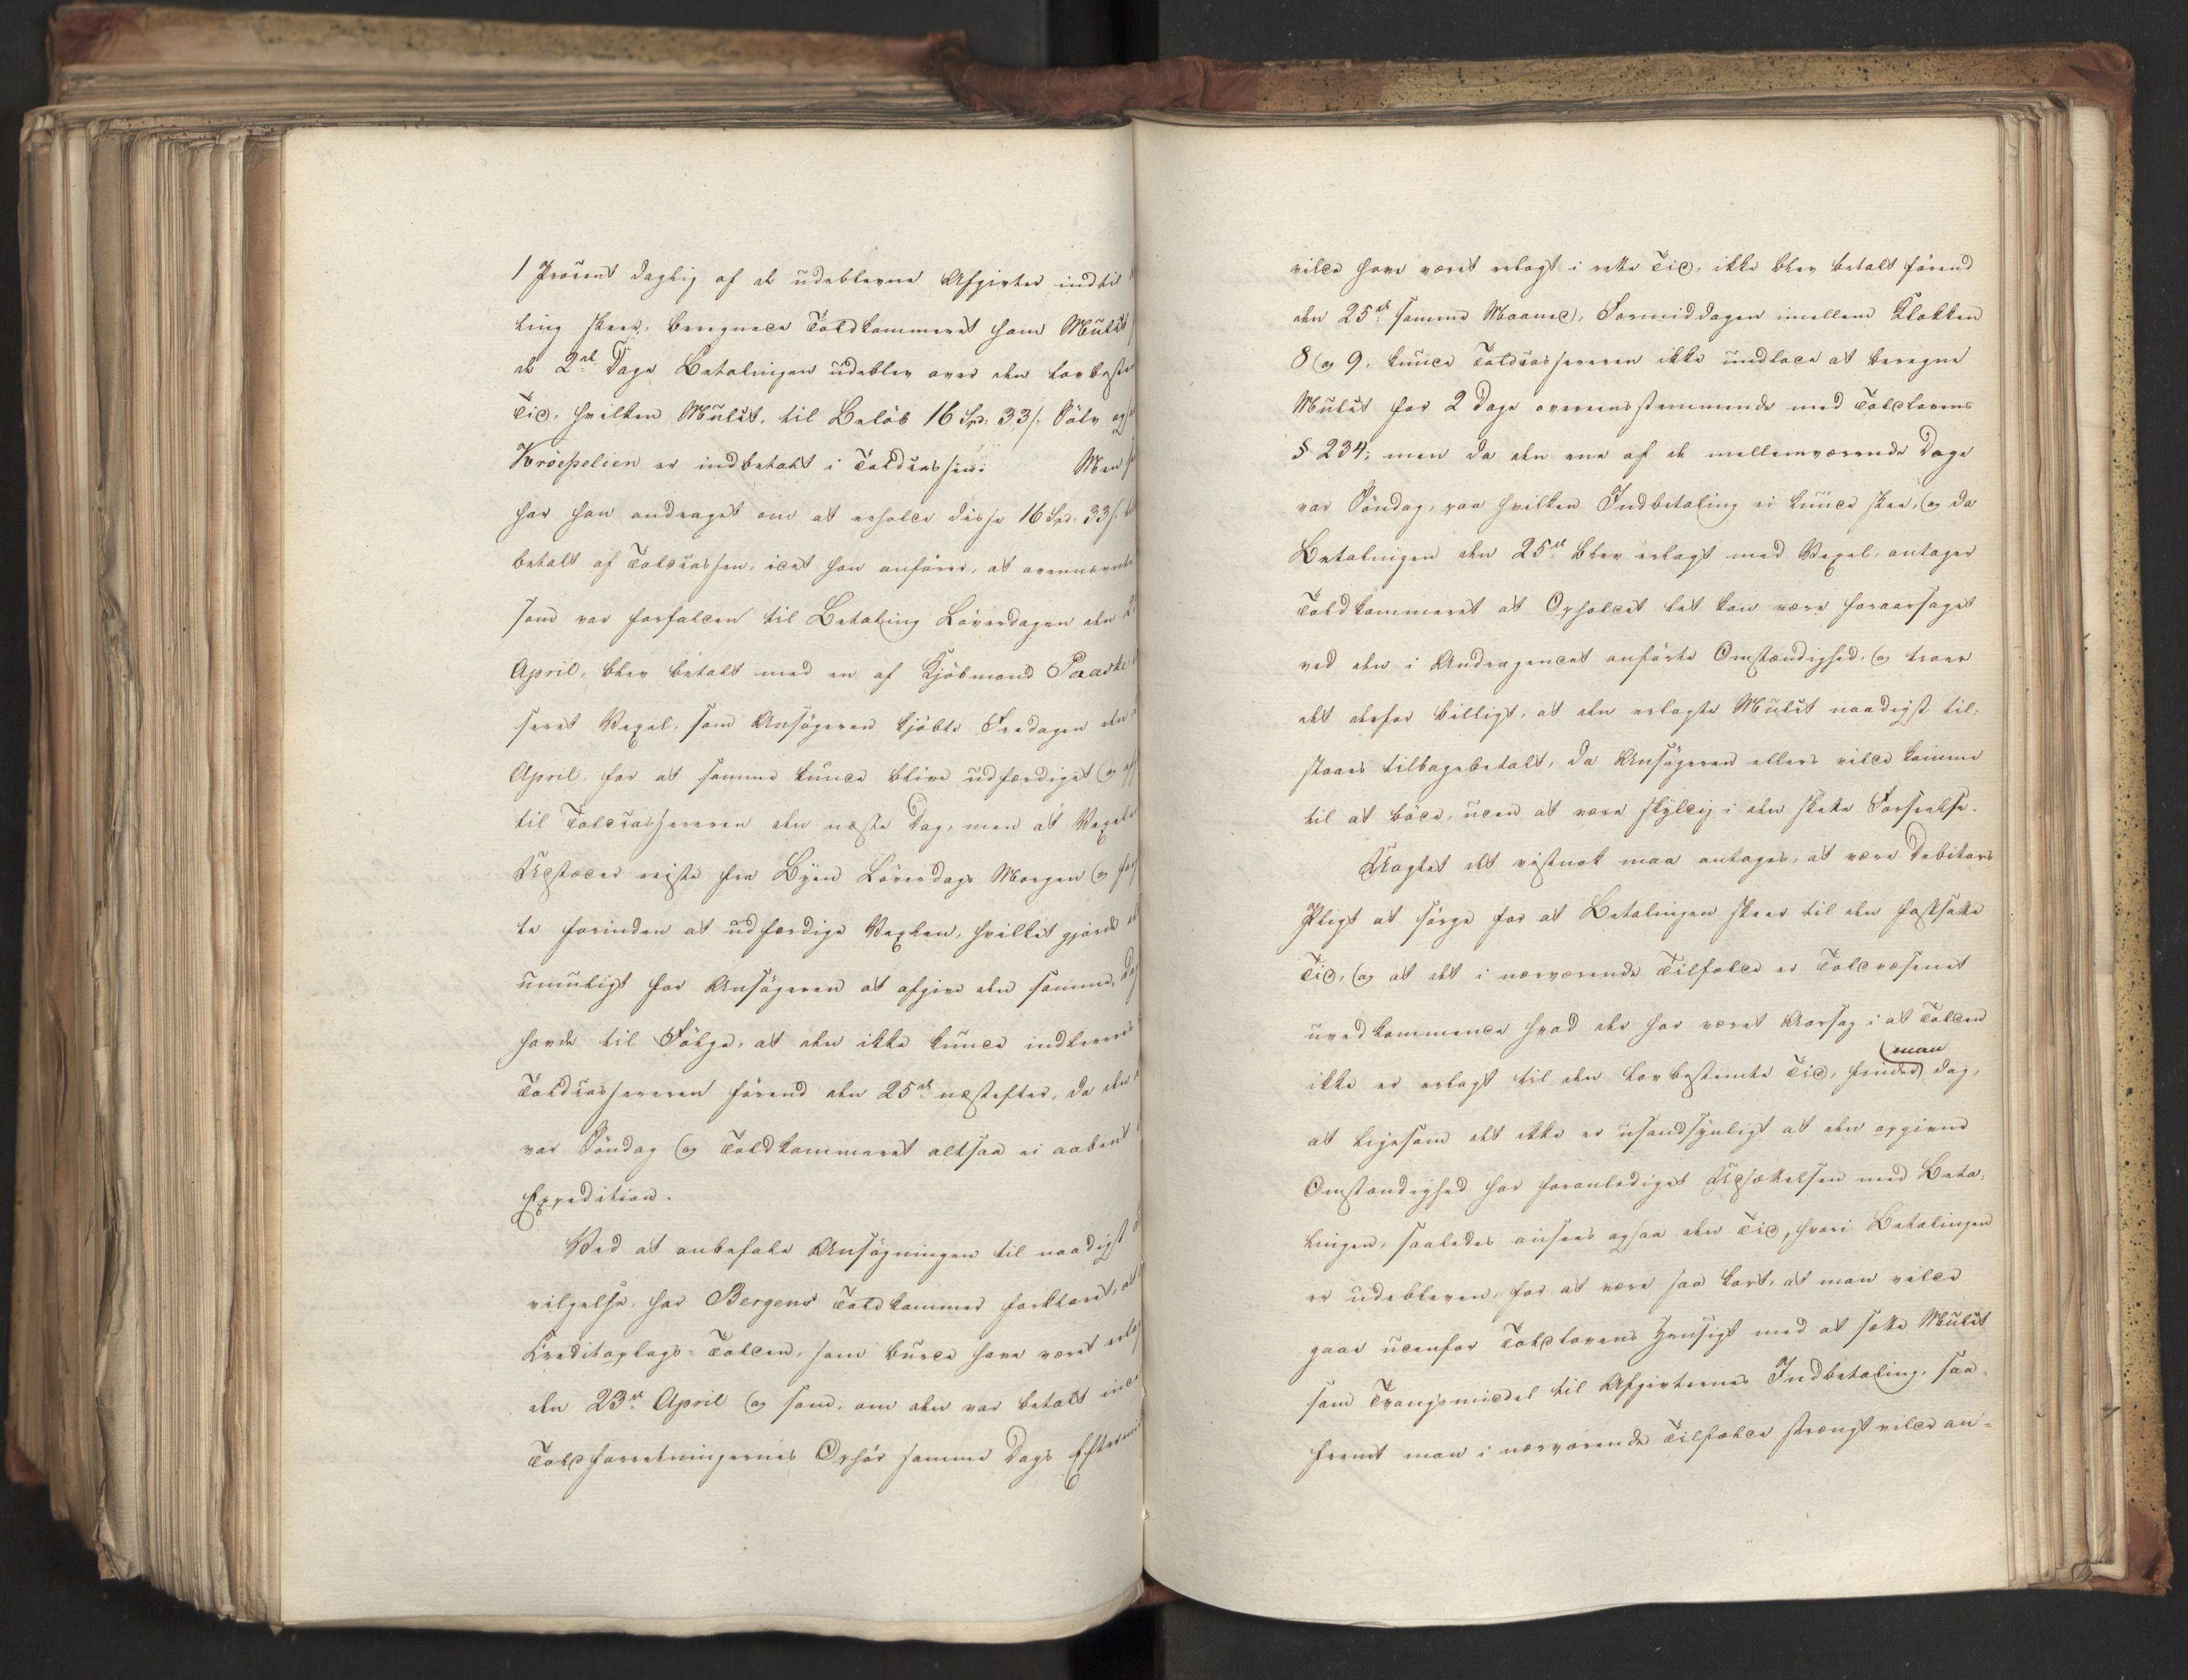 1 Procent daglig af de udeblevne Afgivter indtil
ling skeer, beregnede Toldkammeret som Mulct
de 2de Dage Betalingen udeblev over den lovbeste
Tid, hvilken Mulct, til Beløb 16 Spd: 33 s: Sölv
Kröepelien er indbetalt i Toldcassen. Men
har han andraget om at erholde disse 16 Spd: 33 s:
betalt af Toldcassen, idet han anfører, at ovennævnte
som var forfalden til Betaling Löverdagen den
April, blev betalt med en af Kjöbmand Paaske
seret Vexel, som Ansögeren kjöbte Fredagen den
April, for at samme kunde blive udfærdiget og
til Toldcassereren den næste Dag, men at Vexelens
Udstæder reiste fra Byen Löverdags Morgen og
te forinden at udfærdige Vexlen, hvilket gjorde
umuligt for Ansögeren at afgive den samme Dag
havde til Fölge, at den ikke kunde indleveres
Toldcassereren förend den 25de næstefter, da den
var Söndag og Toldkammeret altsaa ei aabent
Expedition.
Ved at anbefale Ansögningen til naadigst
vilgelse, har Bergens Toldkammer forklaret, at
Creditoplags-Tolden, som burde have været
den 23de April og som, om den var betalt
Toldforretningernes Ophör samme Dags Eftermid
vilde have været erlagt i rette Tid, ikke blev betalt förend
den 25de samme Maaned, Formiddagen imellem Klokken
8 og 9, kunde Toldcassereren ikke undlade at beregne
Mulct for 2 Dage overeensstemmende med Toldlovens
§ 234; men da den ene af de mellemværende Dage
var Söndag, paa hvilken Indbetaling ei kunde skee, og da
Betalingen den 25de blev erlagt med Vexel, antager
Toldkammeret at Opholdet let kan være foraarsaget
ved den i Andragendet anförte Omstændighed, og troer
det derfor billigt, at den erlagte Mulct naadigst til-
staaes tilbagebetalt, da Ansögeren ellers vilde komme
til at böde, uden at være skyldig i den skete Forseelse.
Uagtet det vistnok maa antages, at være Debitors
Pligt at sörge for at Betalingen skeer til den fastsatte
Tid, og at det i nærværende Tilfælde er Toldvæsenet
uvedkommende hvad der har været Aarsag i at Tolden
ikke er erlagt til den lovbestemte Tid, finder man dog,
at ligesom det ikke er usandsynligt at den opgivne
Omstændighed har foranlediget Udsættelsen med Beta-
lingen, saaledes ansees ogsaa den Tid, hvori Betalingen
er udebleven, for at være saa kort, at man vilde
gaae udenfor Toldlovens Hensigt med at sætte Mulct
som Tvangsmiddel til Afgivternes Indbetaling, saa-
fremt man i nærværende Tilfælde strængt vilde an-